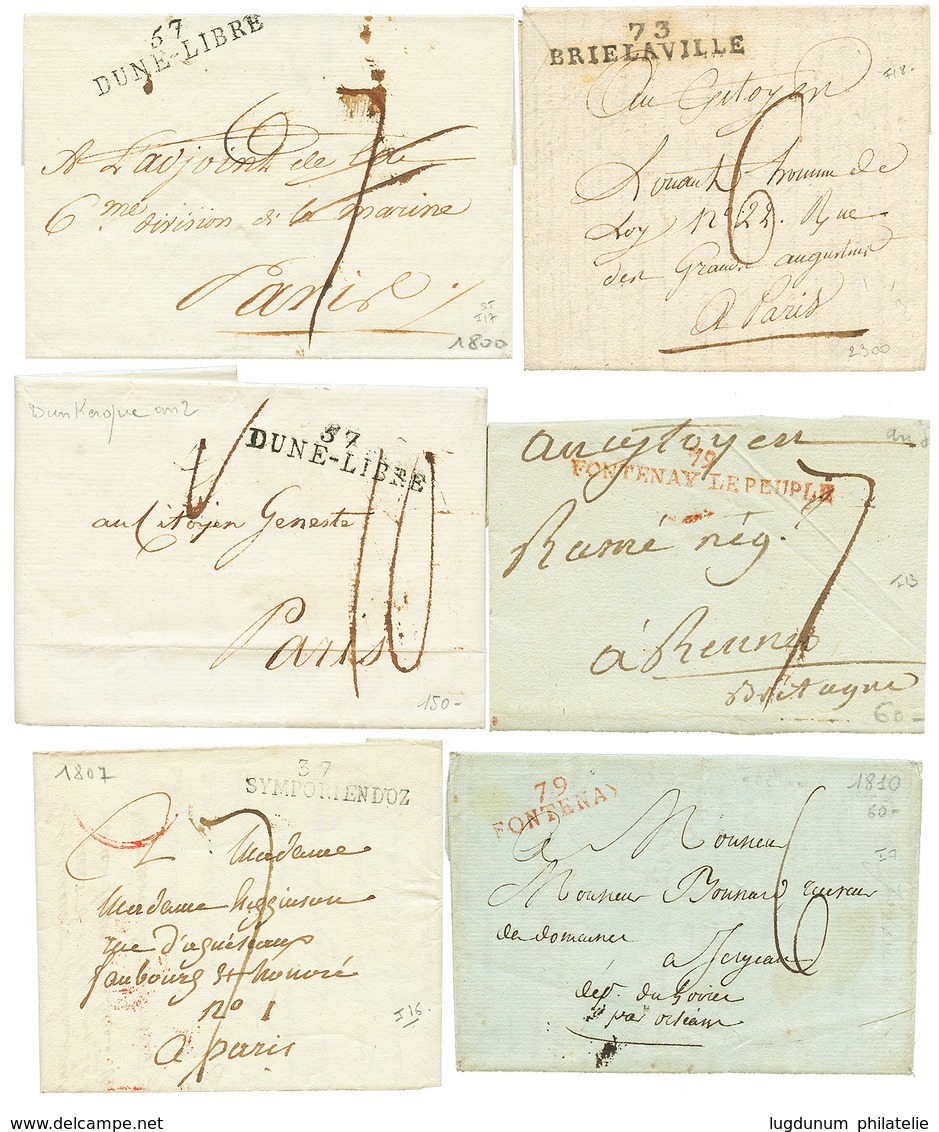 57
DUNE-LIBRE
6
7
A L'adjoint de la
6.me division de la marine
Paris
ST
I17
1800
73
BRIELAVILLE
I18-
Au Citoyen
6
homme de
Loy N° 22. Rue
des Grands augustins
A Paris
2300
Dunkerque an 2
57
DUNE-LIBRE
10
au Citoyen Geneste
Paris
150-
au cytoyen
an 8
79
FONTENAY LE PEUPLE
7
Ramé nég.
I13
à Rennes
Bretagne
60-
1807
37
SYMPORIEND'OZ
7
A Madame
Madame higginson
rue d'aguesseau
faubourg st honoré
n° 1
I16.
a paris
79
FONTENAY
1810
60-
I7
6
A Monsieur
Monsieur Bonnard
de domaines
a Jergeau
dép.t du Loiret
par orléans
lugdunum philatelie